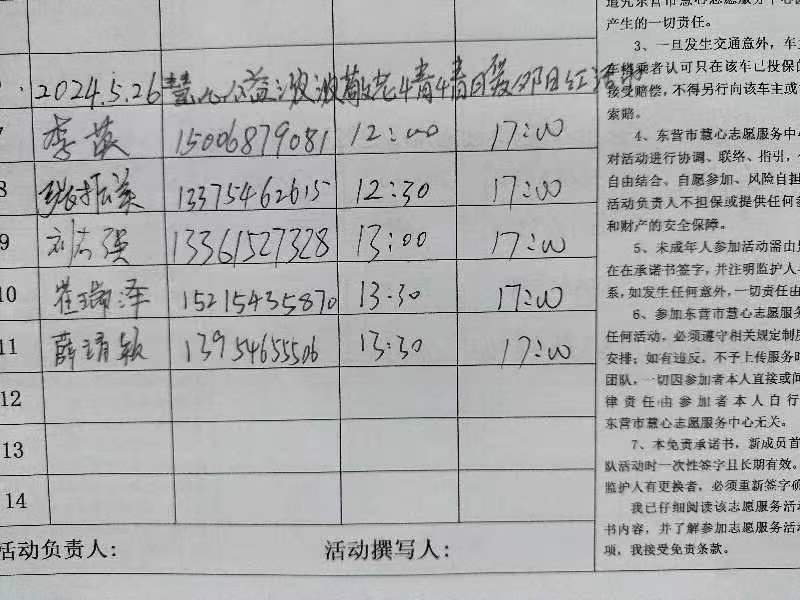 2024.5.26 慧心公益波波敬老情情日爱夕阳红活动
李英 15006879081 12:00 17:00
8 张振英 13375462615 12:30 17:00
9 刘志强 13361527328 13:00 17:00
10 崔瑞泽 15215435870 13:30 17:00
11 薛靖颖 13954655506 13:30 17:00
12
13
14
活动负责人: 活动撰写人:
产生的一切责任。
3、一旦发生交通意外,车主
乘者认可只在该车已投保的
接受赔偿,不得另行向该车主或
索赔。
4、东营市慧心志愿服务中心
对活动进行协调、联络、指引,
自由结合、自愿参加、风险自担
活动负责人不担保或提供任何
和财产的安全保障。
5、未成年人参加活动需由
在在承诺书签字,并注明监护人
系,如发生任何意外,一切责任由
6、参加东营市慧心志愿服务
任何活动,必须遵守相关规定制度
安排;如有违反,不予上传服务时
团队,一切因参加者本人直接或间
律责任由参加者本人自行
东营市慧心志愿服务中心无关。
7、本免责承诺书,新成员首
队活动时一次性签字且长期有效。
监护人有更换者,必须重新签字确
我已仔细阅读该志愿服务活动
书内容,并了解参加志愿服务活动
项,我接受免责条款。